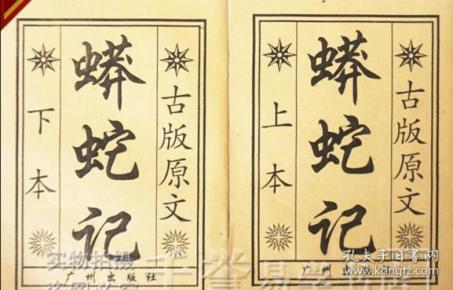 古版原文
蟒蛇记
上本
广州
古版原文
蟒蛇记
下本
广州出版社
实物拍摄
孔夫子旧书网